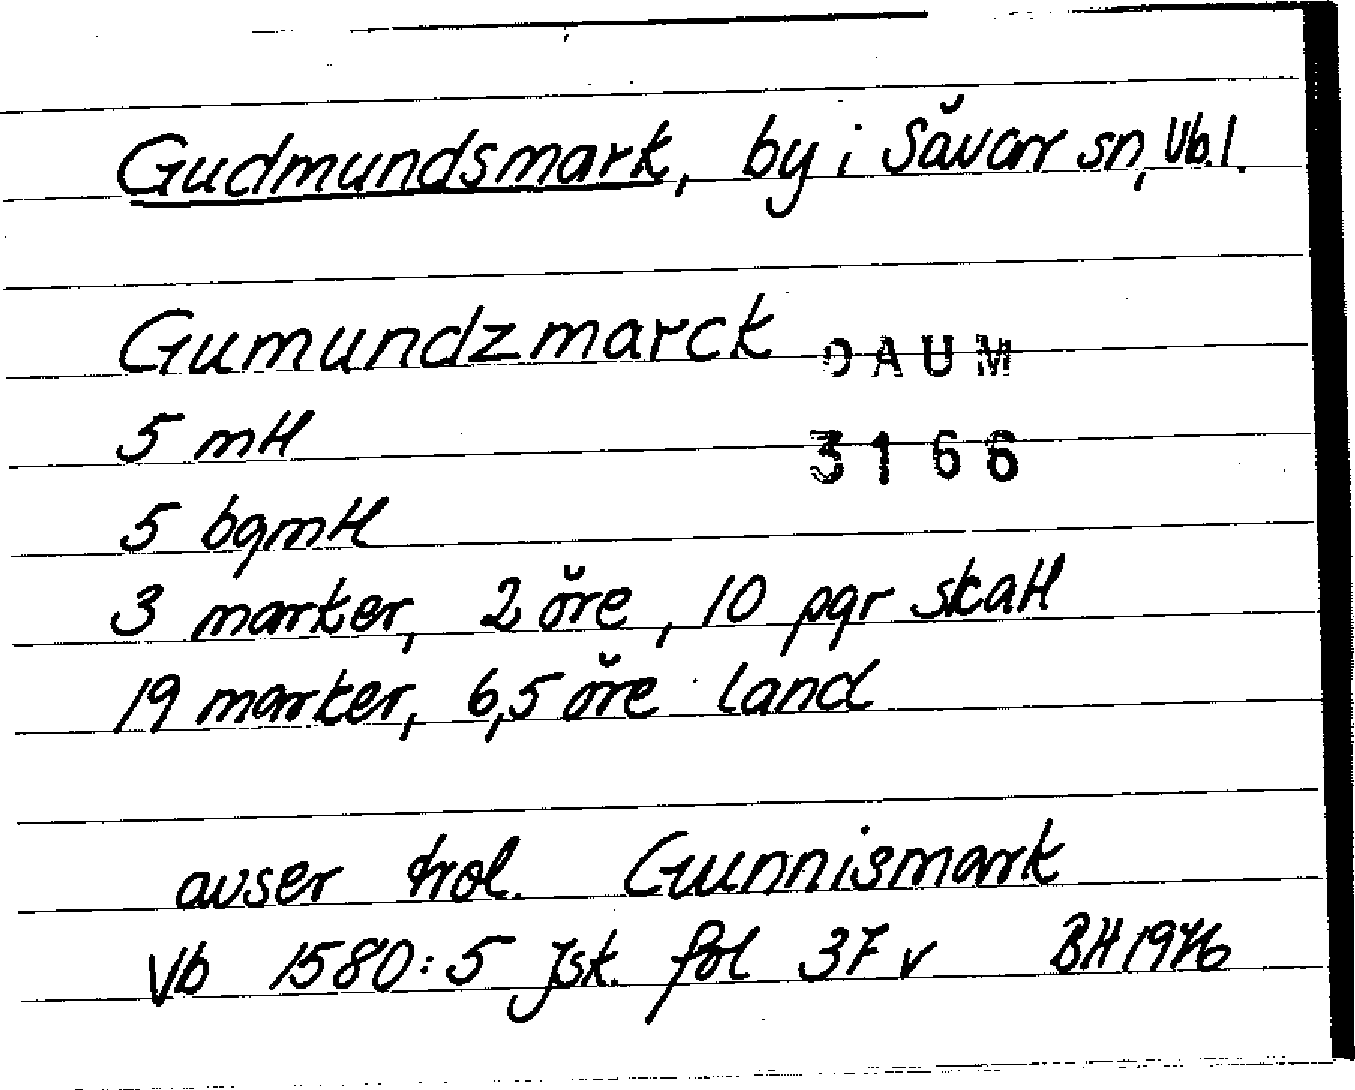 Gudmundsmark, by i Sävar sn, Vb. l.
Gumundzmarck
DAUM
5 mtl
3166
5 bgmtl
3 marker, 2 öre, 10 pgr skatt
19 marker, 6,5 öre land
avser trol. Gunnismark
Vb 1580:5 Jsk. fol 37 v BH 1976